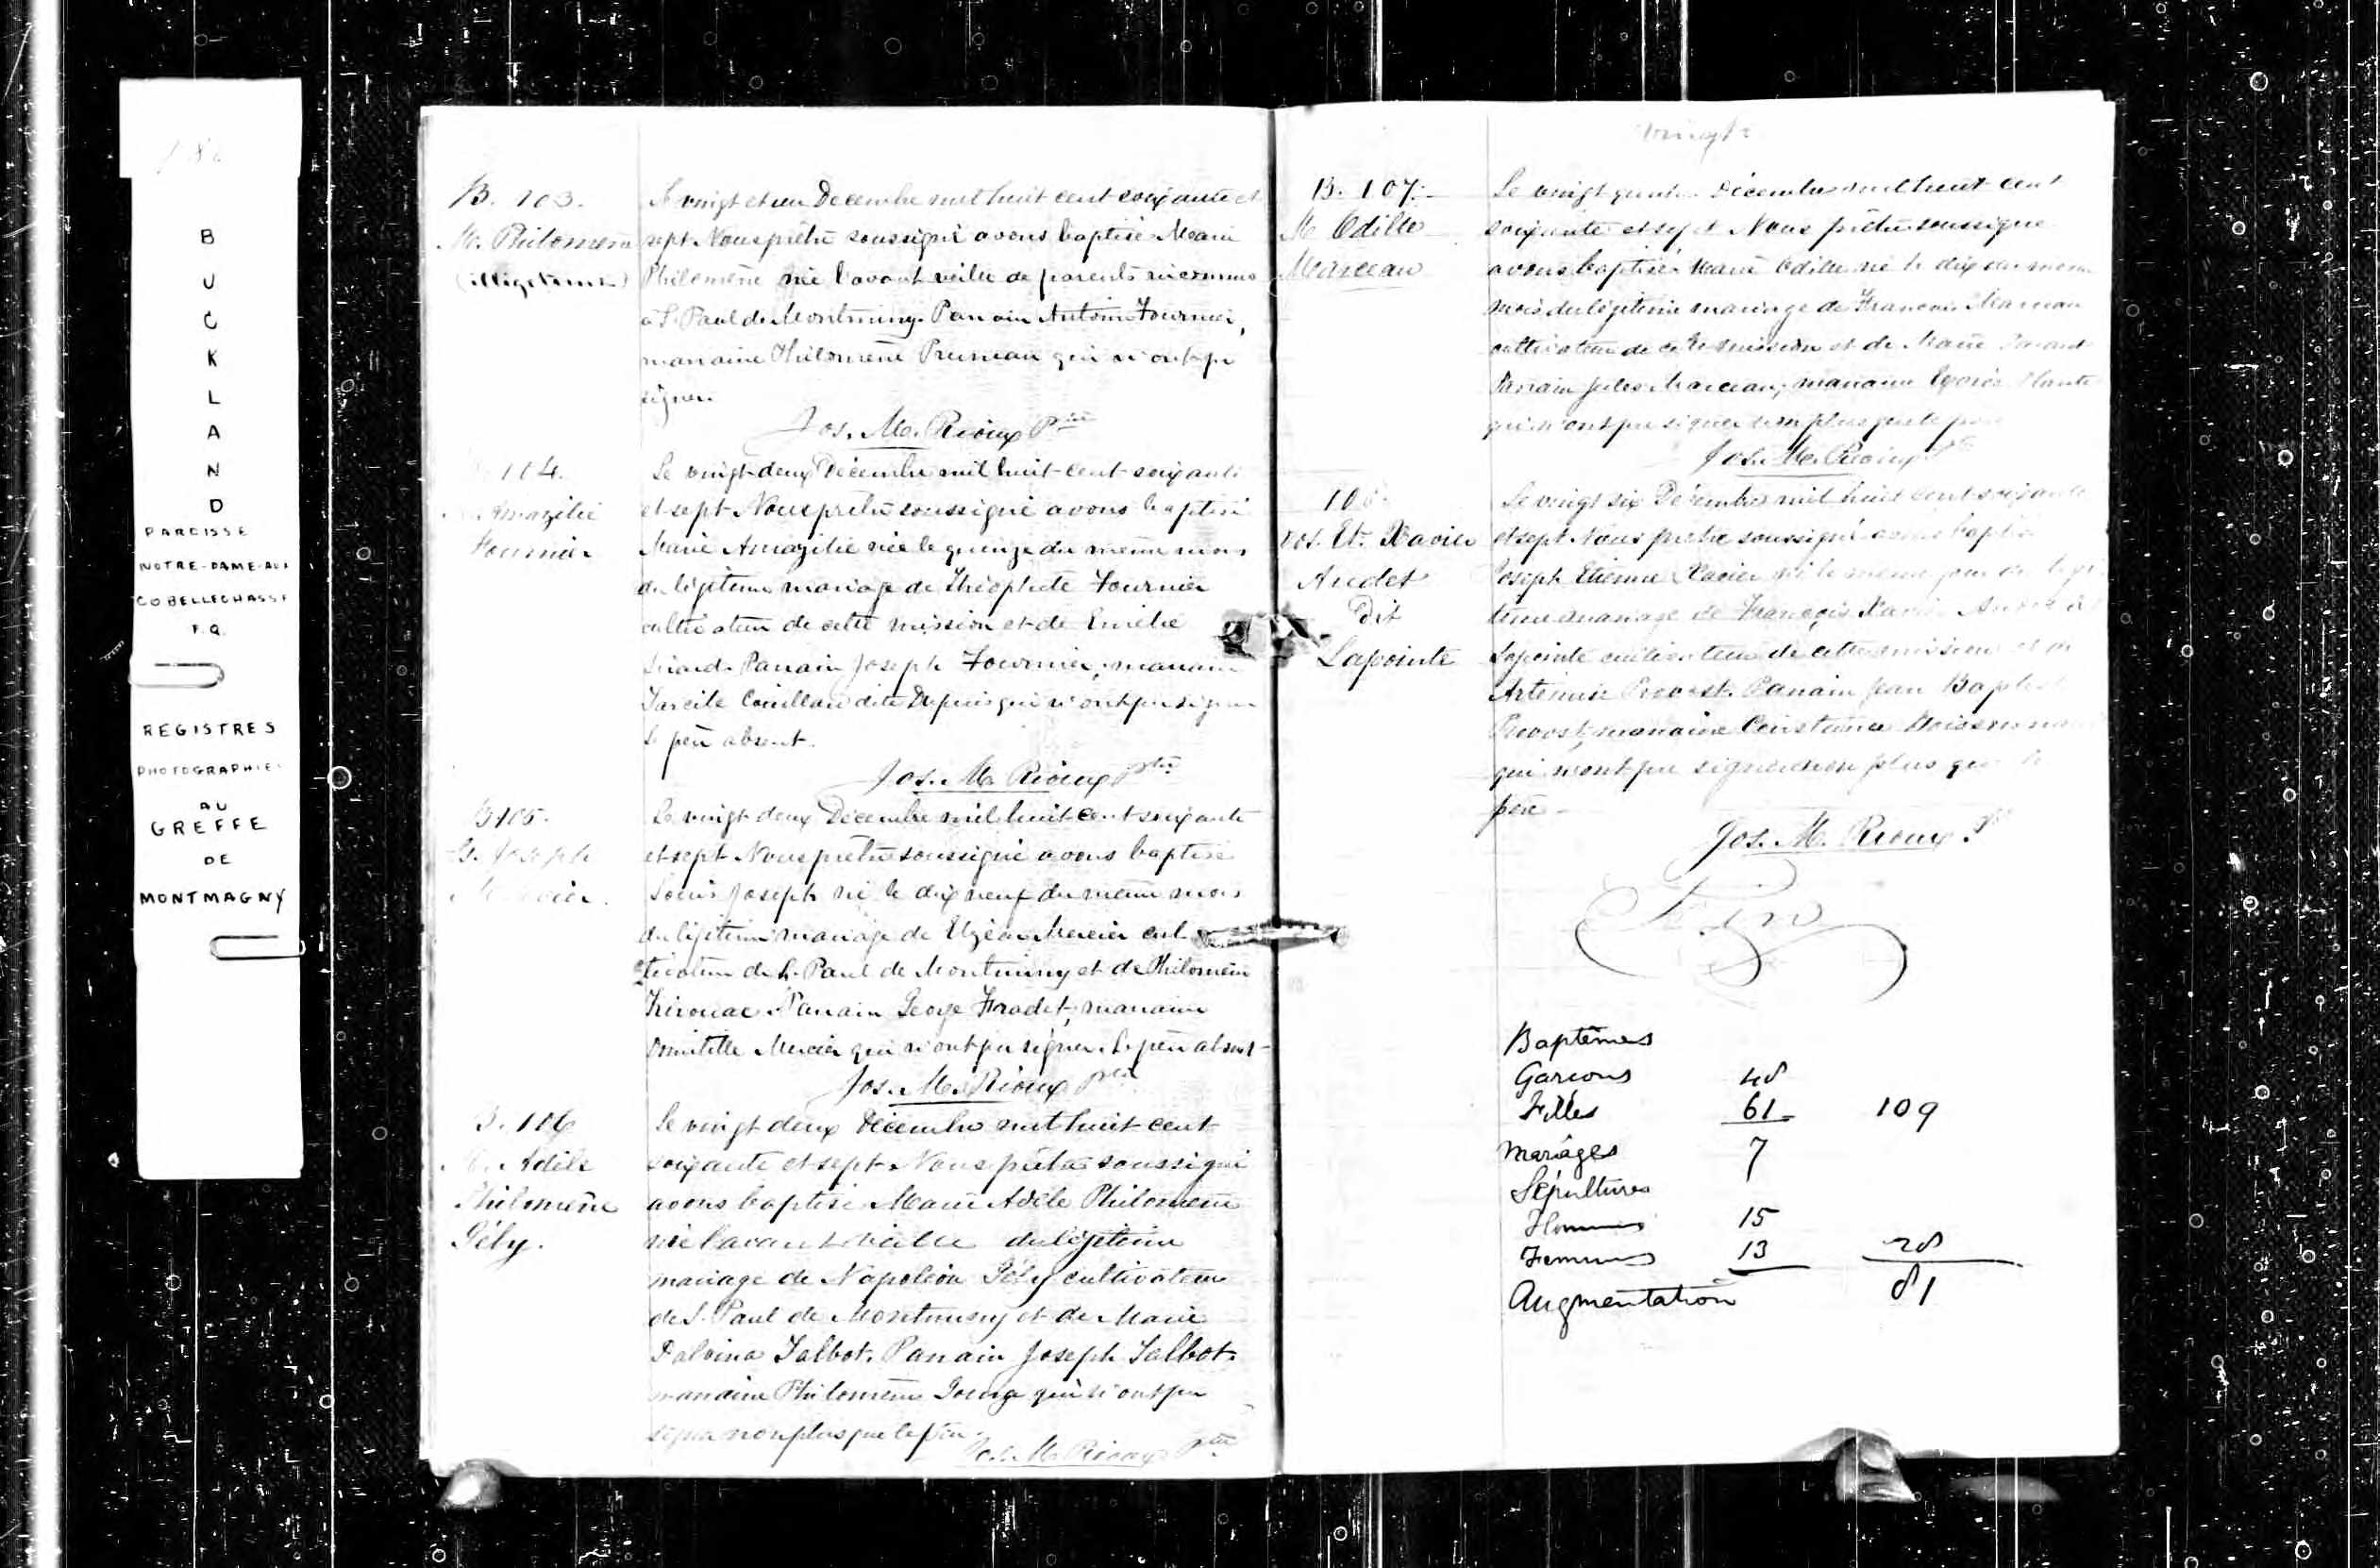 B
U
C
K
L
A
N
D
PAROISSE
NOTRE-DAME-AUX
CO BELLECHASSE
P.Q.
REGISTRES
PHOTOGRAPHIE
AU
GREFFE
DE
MONTMAGNY
B. 103.
M. Philomène
(illégitime)
Le vingt et un Decembre mil huit cent soixante et
sept Nous prêtre soussigné avons baptisé Marie
Philomène née l'avant veille de parents inconnus
à S. Paul de Montminy. Parrain Antoine Fournier,
marraine Philomène Pruneau qui n'ont pu
signer.
Jos. M. Rioux Ptre
104.
Amazélie
Fournier
Le vingt-deux Décembre mil huit-cent-soixante
et sept Nous prêtre soussigné avons baptisé
Marie Amazélie née le quinze du même mois
du légitime mariage de Théophile Fournier
cultivateur de cette mission et de Emélie
Parrain Joseph Fournier, marraine
Tarcile Couillard dite Dupuis qui n'ont pu signer
Le père absent.
Jos. M. Rioux Ptre
B 105.
L. Joseph
Mercier.
Le vingt deux Décembre mil huit cent soixante
et sept Nous prêtre soussigné avons baptisé
Louis Joseph né le dix neuf du même mois
du légitime mariage de Elzéar Mercier cul
tivateur de S. Paul de Montminy et de Philomène
Kérouac Parrain George Fradet, marraine
Domitille Mercier qui n'ont pu signer. Le père absent-
Jos. M. Rioux Ptre
B. 106
M. Adèle
Philomène
Gély.
Le vingt deux Décembre mil huit cent
soixante et sept Nous prêtre soussigné
avons baptisé Marie Adèle Philomène
née l'avant veille du légitime
mariage de Napoléon Gély cultivateur
de S. Paul de Montminy et de Marie
Dalvina Talbot. Parrain Joseph Talbot
marraine Philomène qui n'ont pu
signer non plus que le père.
Jos. M. Rioux Ptre
vingt
B. 107.
M. Odille
Marceau
Le vingt Décembre mil huit cent
soixante et sept Nous prêtre soussigné
avons baptisé Marie Odille né le dix du même
mois du légitime mariage de François Marceau
cultivateur de cette mission et de Marie
Parrain Jules Marceau, marraine Plante
qui n'ont pu signer non plus que le père
Jos. M. Rioux Ptre
108.
Jos. Et. Xavier
Audet
Dit
Lapointe
Le vingt six Décembre mil huit cent soixante
et sept Nous prêtre soussigné avons baptisé
Joseph Etienne Xavier né le même jour du légi
time mariage de François Xavier Audet dit
Lapointe cultivateur de cette mission et de
Artémise Provost. Parrain Jean Baptiste
Provost, marraine Constance
qui n'ont pu signer non plus que le
père -
Jos. M. Rioux Ptre
Fin
Baptêmes
Garçons 48
Filles 61 109
Mariages 7
Sépultures
Hommes 15
Femmes 13 28
Augmentation 81